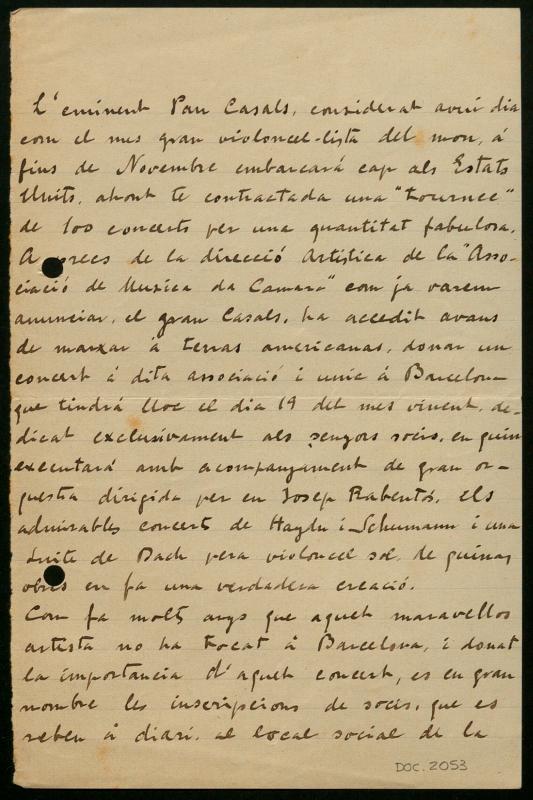 L'eminent Pau Casals, considerat avui dia
com el mes gran violoncel-lista del mon, á
fins de Novembre embarcará cap als Estats
Units, ahont te contractada una "tournee"
de 100 concerts per una quantitat fabulosa.
A preces de la direcció Artistica de la "Asso-
ciació de Musica da Camara" com ja varem
anunciar, el gran Casals, ha accedit avans
de marxar á terras americanas, donar un
concert á dita associació i unic á Barcelona
que tindrá lloc el dia 19 del mes vinent, de-
dicat exclusivament als senyors socis, en quin
executará amb acompanyament de gran or-
questra dirigida per en Josep Rabentós, els
admirables concerts de Haydn i Schumann i una
Suite de Bach pera violoncel sol, de quinas
obres en fa una verdadera creació.
Com fa molts anys que aquet maravellos
artista no ha tocat á Barcelona, i donat
la importancia d'aquet concert, es en gran
nombre les inscripcions de socis, que es
reben á diari, al local social de la
DOC. 2053